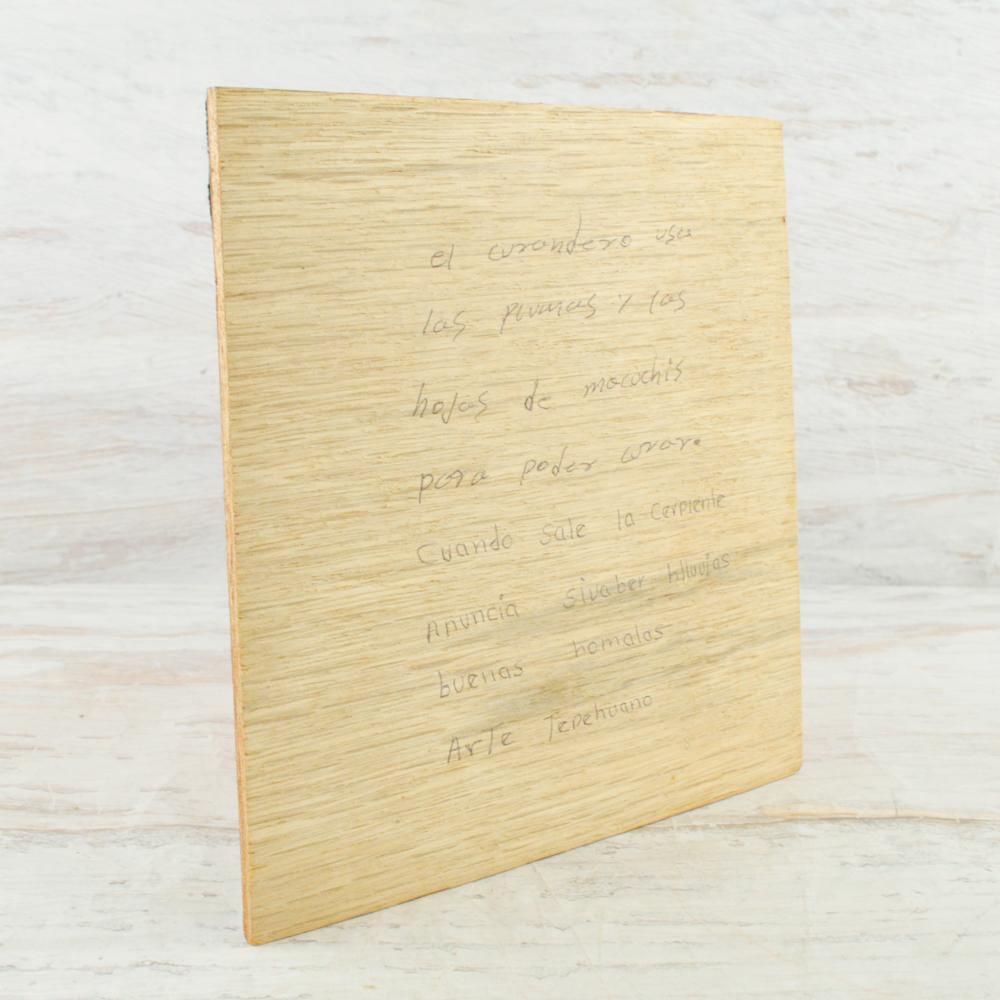 el curandero usa
las plumas y las
hojas de macuchis
para poder curar.
Cuando Sale la Cerpiente
Anuncia sivaber hlluvias
buenas homalas
ArTe Tepehuano